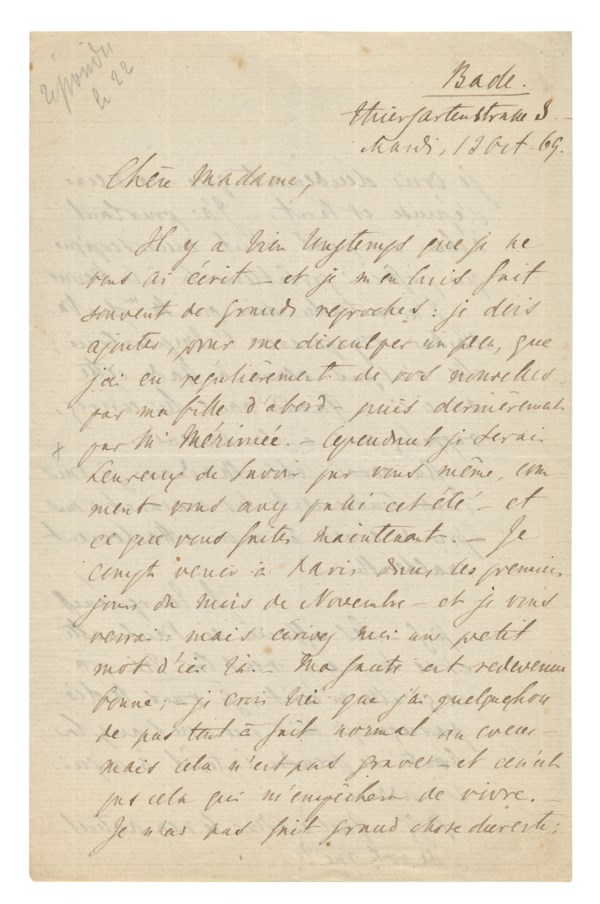 répondu
le 22
Bade.
Thiergartenstrasse 3.
Mardi, 12 Oct. 69.
Chère Madame,
Il y a bien longtemps que je ne
vous ai écrit – et je m'en suis fait
souvent de grands reproches : je dois
ajouter, pour me disculper un peu, que
j'ai eu régulièrement de vos nouvelles
par ma fille d'abord – puis dernièrement
par Mr Mérimée. – Cependant je serais
heureux de savoir par vous même, com-
ment vous avez passé cet été – et
ce que vous faites maintenant. – Je
compte venir à Paris dans les premiers
jours du mois de Novembre – et je vous
verrai : mais écrivez moi un petit
mot d'ici là. – Ma santé est redevenue
bonne ; – je crois bien que j'ai quelque chose
de pas tout à fait normal au coeur –
mais cela n'est pas grave – et ce n'est
pas cela qui m'empêchera de vivre. –
Je n'ai pas fait grand chose du reste :